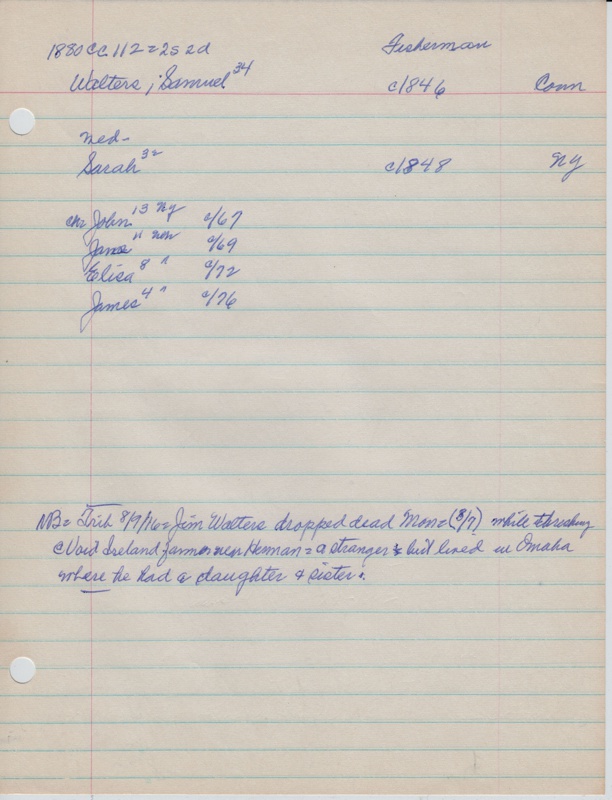 1880 CC. 112 = 2s 2d Fisherman
Walters; Samuel 34 c1846 Conn
med-
Sarah 32 c1848 NY
chr John 13 NY c/67
Jane 11 c/69
Elisa 8 " c/72
James 4 " c/76
NB = Trib 8/9/16 = Jim Walters dropped dead Mon = (8/7) while threshing
Ireland farm near Herman = a stranger but lived in Omaha
where he had a daughter & sister.